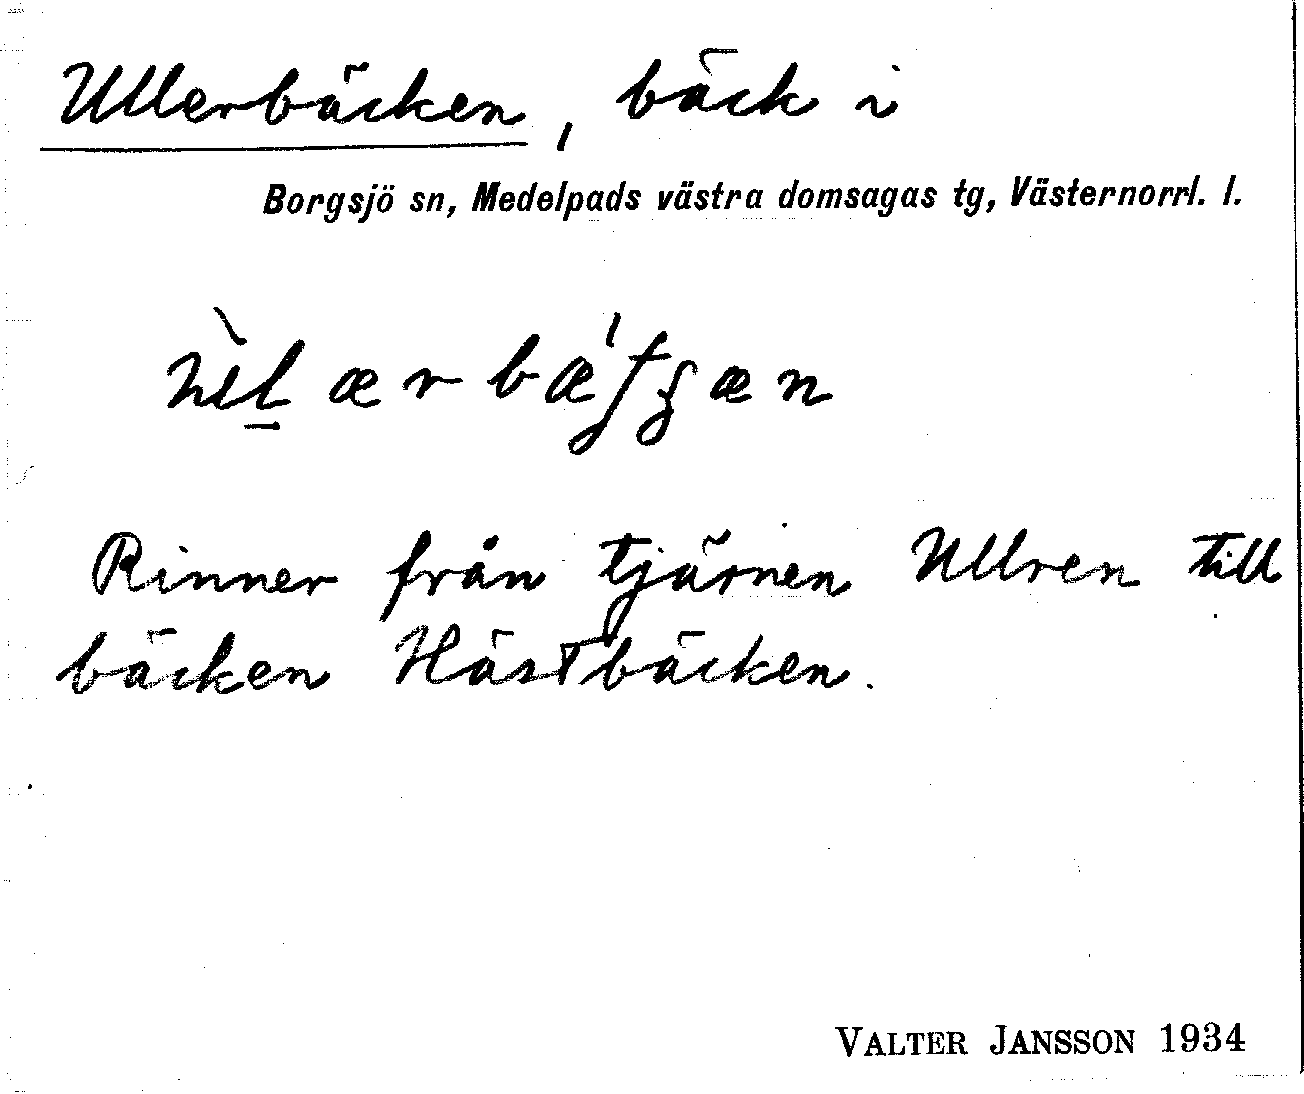 Ullerbäcken, bäck i
Borgsjö sn, Medelpads västra domsagas tg, Västernorrl. l.
Rinner från tjärnen Ullren till
bäcken Hästbäcken.
VALTER JANSSON 1934